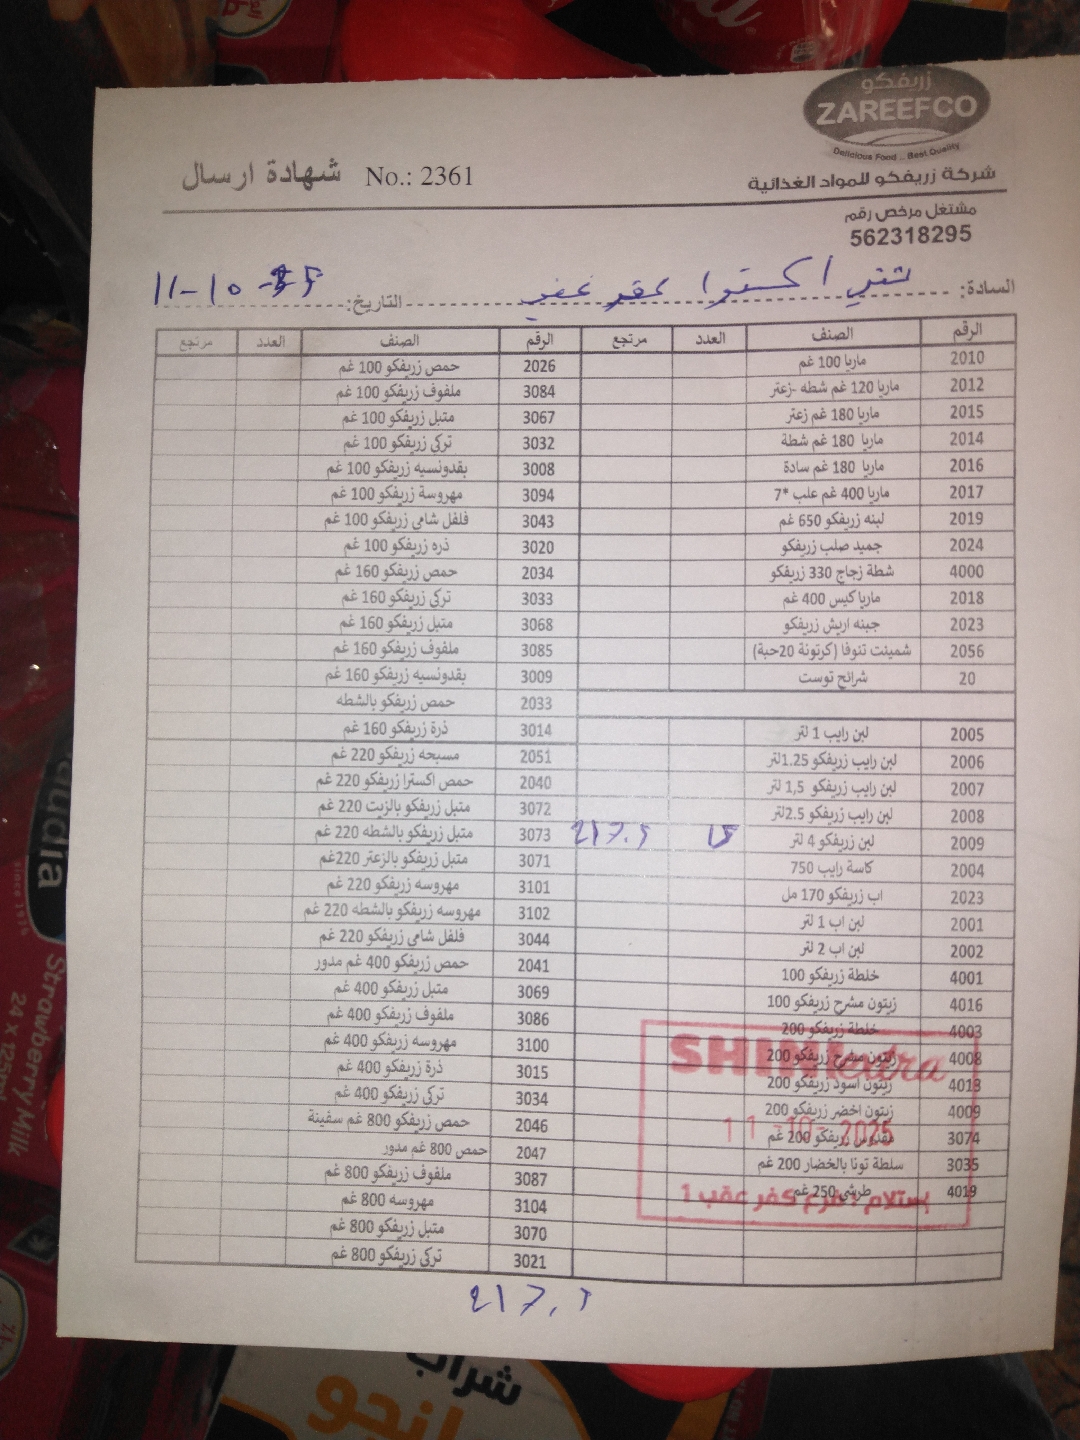 زريفكو
ZAREEFCO
Delicious Food .. Best Quality
شهادة ارسال No.: 2361
شركة زريفكو للمواد الغذائية
مشتغل مرخص رقم
562318295
السادة: شني اكسترا كفر عقب التاريخ: 11-10-25
الرقم الصنف العدد مرتجع الرقم الصنف العدد مرتجع
2010 ماريا 100 غم 2026 حمص زريفكو 100 غم
2012 ماريا 120 غم شطه -زعتر 3084 ملفوف زريفكو 100 غم
2015 ماريا 180 غم زعتر 3067 متبل زريفكو 100 غم
2014 ماريا 180 غم شطة 3032 تركي زريفكو 100 غم
2016 ماريا 180 غم سادة 3008 بقدونسيه زريفكو 100 غم
2017 ماريا 400 غم علب *7 3094 مهروسة زريفكو 100 غم
2019 لبنه زريفكو 650 غم 3043 فلفل شامي زريفكو 100 غم
2024 جميد صلب زريفكو 3020 ذره زريفكو 100 غم
4000 شطة زجاج 330 زريفكو 2034 حمص زريفكو 160 غم
2018 ماريا كيس 400 غم 3033 تركي زريفكو 160 غم
2023 جبنه اريش زريفكو 3068 متبل زريفكو 160 غم
2056 شمينت تنوفا (كرتونة 20حبة) 3085 ملفوف زريفكو 160 غم
20 شرائح توست 3009 بقدونسيه زريفكو 160 غم
2033 حمص زريفكو بالشطه
2005 لبن رايب 1 لتر 3014 ذرة زريفكو 160 غم
2006 لبن رايب زريفكو 1.25لتر 2051 مسبحه زريفكو 220 غم
2007 لبن رايب زريفكو 1,5 لتر 2040 حمص اكسترا زريفكو 220 غم
2008 لبن رايب زريفكو 2.5لتر 3072 متبل زريفكو بالزيت 220 غم
2009 لبن زريفكو 4 لتر 15 217.5 3073 متبل زريفكو بالشطه 220 غم
2004 كاسة رايب 750 3071 متبل زريفكو بالزعتر 220غم
2023 اب زريفكو 170 مل 3101 مهروسه زريفكو 220 غم
2001 لبن اب 1 لتر 3102 مهروسه زريفكو بالشطه 220 غم
2002 لبن اب 2 لتر 3044 فلفل شامي زريفكو 220 غم
4001 خلطة زريفكو 100 2041 حمص زريفكو 400 غم مدور
4016 زيتون مشرح زريفكو 100 3069 متبل زريفكو 400 غم
4003 خلطة زريفكو 200 3086 ملفوف زريفكو 400 غم
4008 زيتون مشرح زريفكو 200 3100 مهروسه زريفكو 400 غم
4013 زيتون اسود زريفكو 200 3015 ذرة زريفكو 400 غم
4009 زيتون اخضر زريفكو 200 3034 تركي زريفكو 400 غم
3074 مقدوس زريفكو 200 غم 2046 حمص زريفكو 800 غم سفينة
3035 سلطة تونا بالخضار 200 غم 2047 حمص 800 غم مدور
4019 طرشي 250 غم 3087 ملفوف زريفكو 800 غم
3104 مهروسه 800 غم
3070 متبل زريفكو 800 غم
3021 تركي زريفكو 800 غم
SHINI extra
11 -10- 2025
إستلام /فرع كفر عقب 1
217.5
audia
since 1976
Strawberry Milk
24 x 125ml
شراب